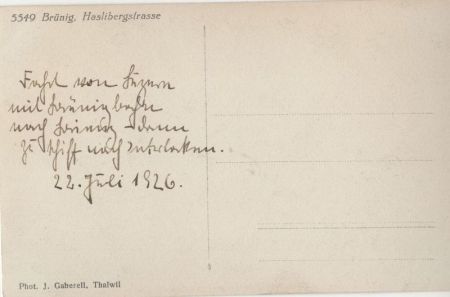 5549 Brünig, Haslibergstrasse
Fahrt von Luzern
mit Brünigbahn
nach Brienz - dann
zu Schiff nach Interlaken.
22. Juli 1926.
Phot. J. Gaberell, Thalwil